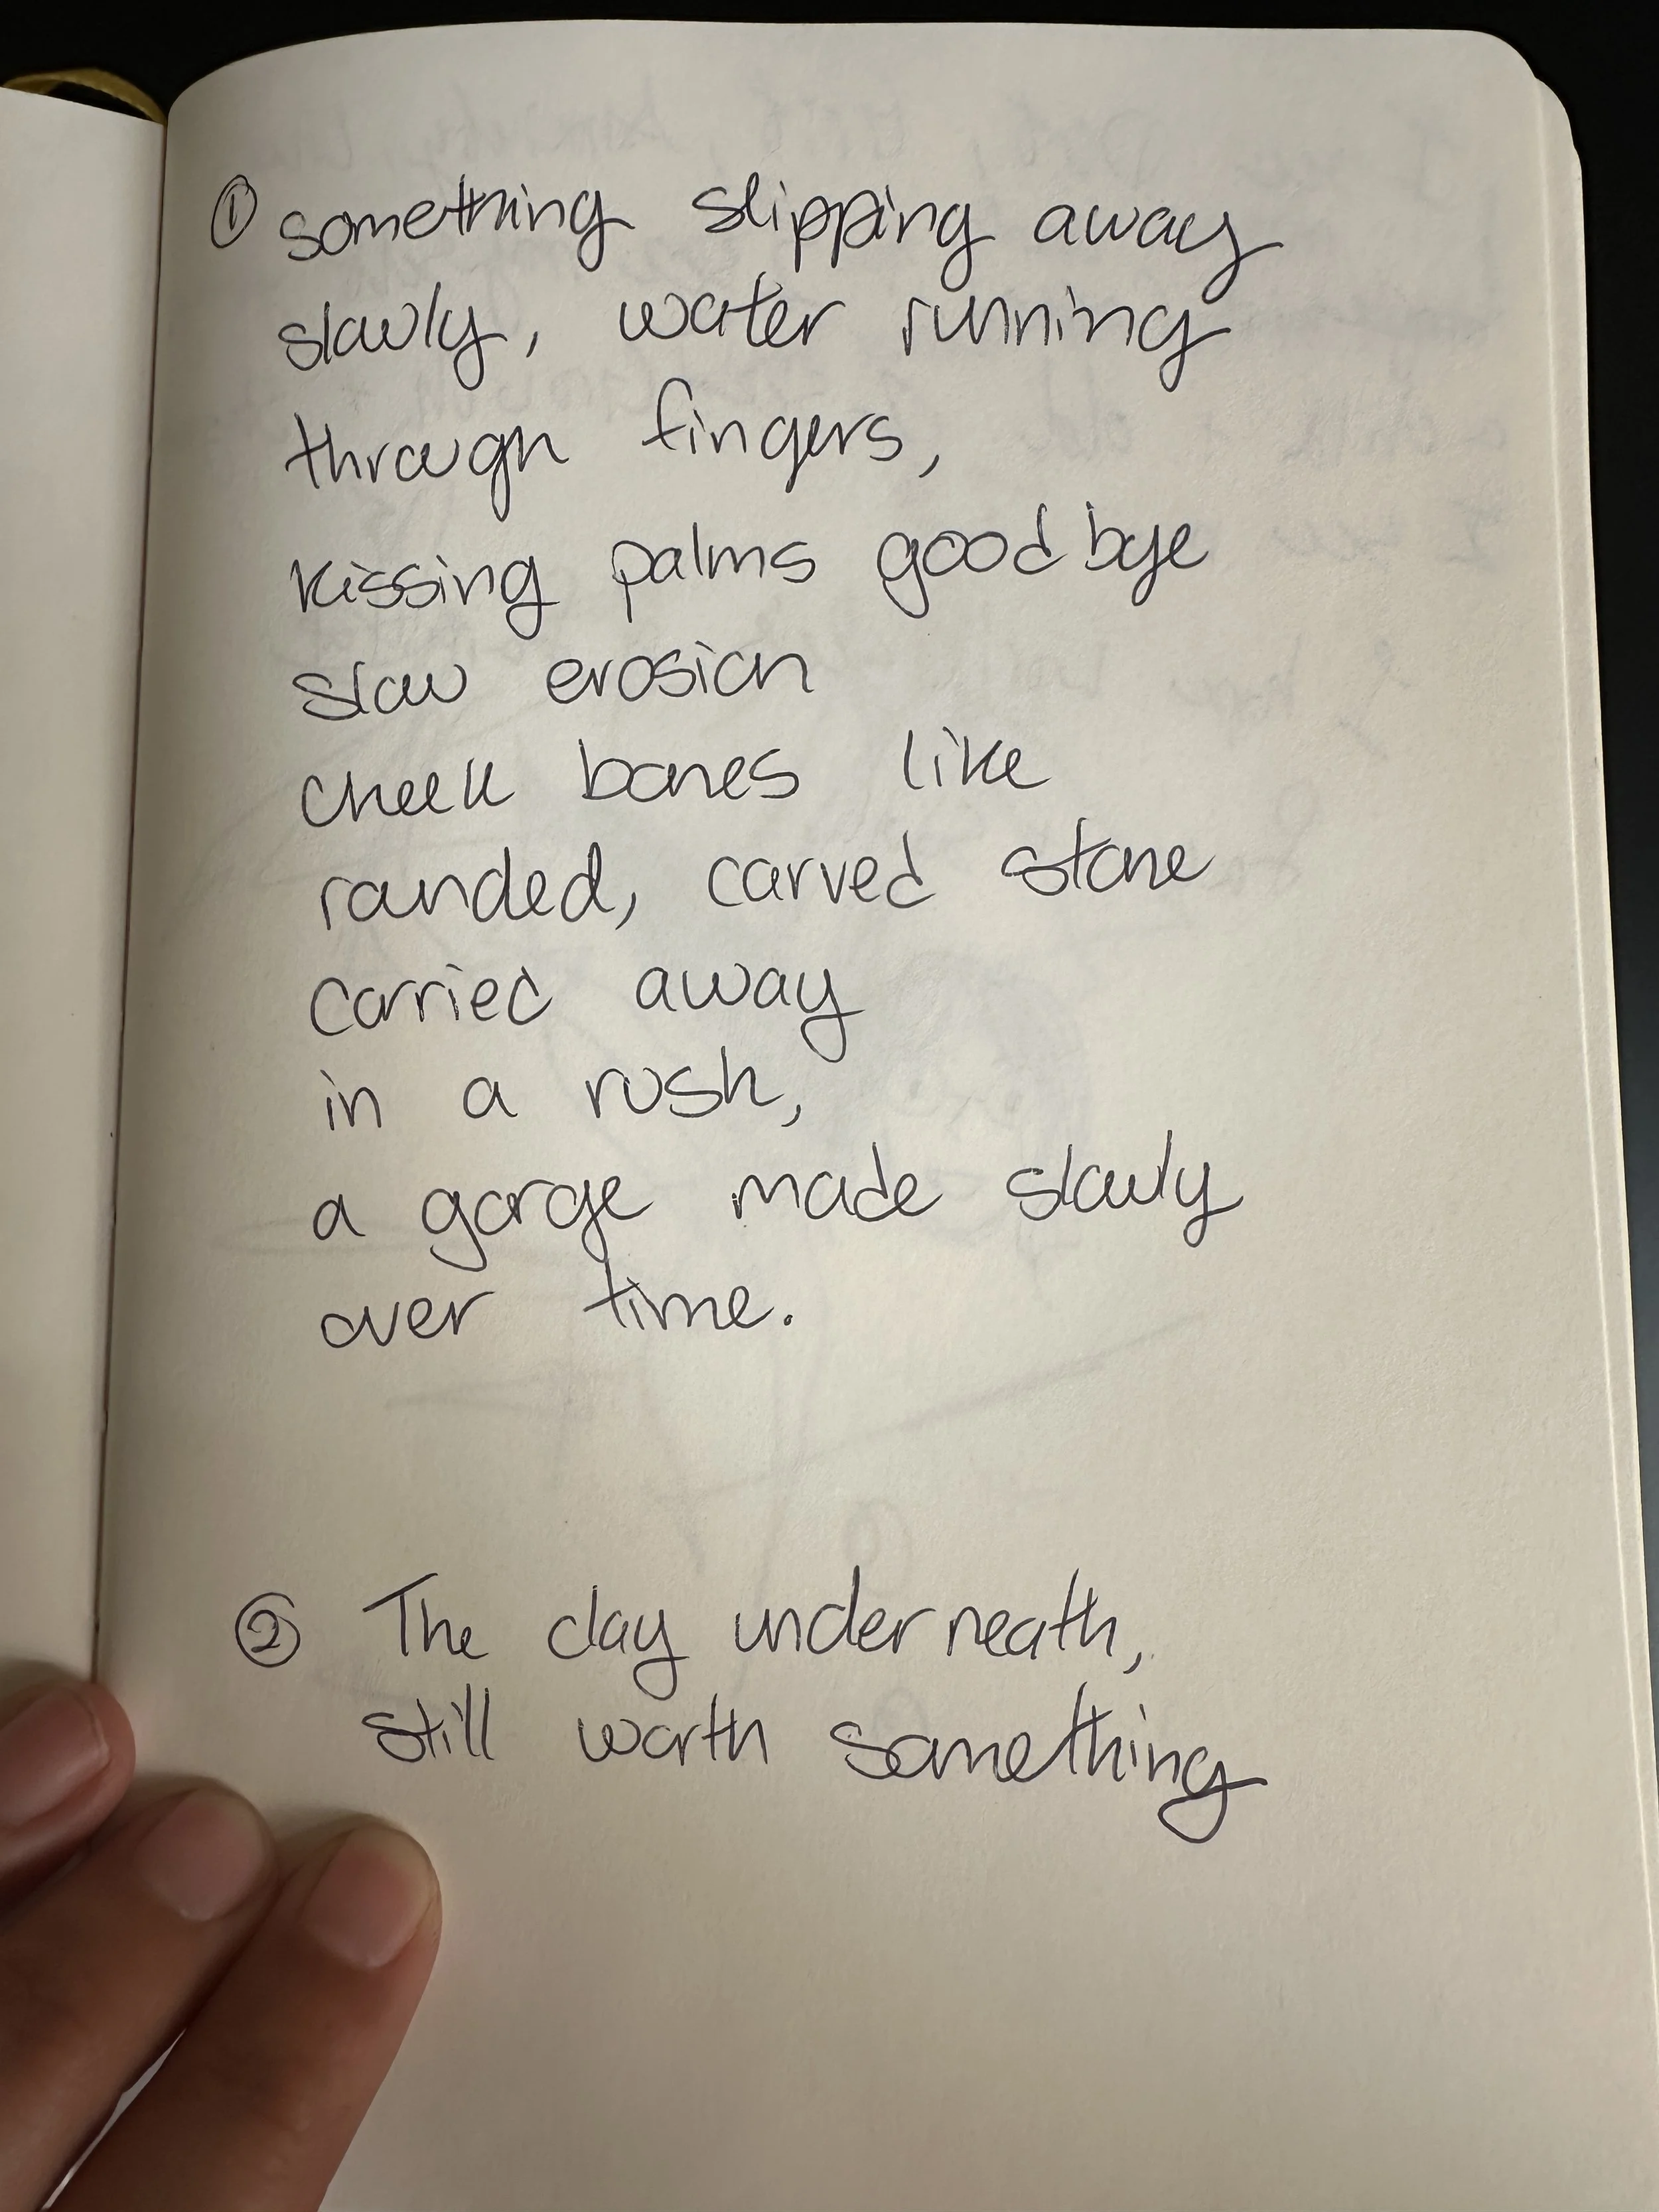 ① something slipping away
slowly, water running
through fingers,
kissing palms goodbye
slow erosion
cheek bones like
rounded, carved stone
carried away
in a rush,
a gorge made slowly
over time.
② The clay underneath,
still worth something